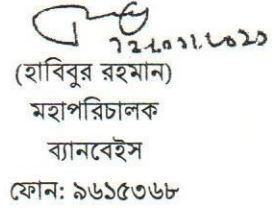 (হাবিবুর রহমান)
মহাপরিচালক
ব্যানবেইস
ফোন: ৯৬১৫৩৬৮